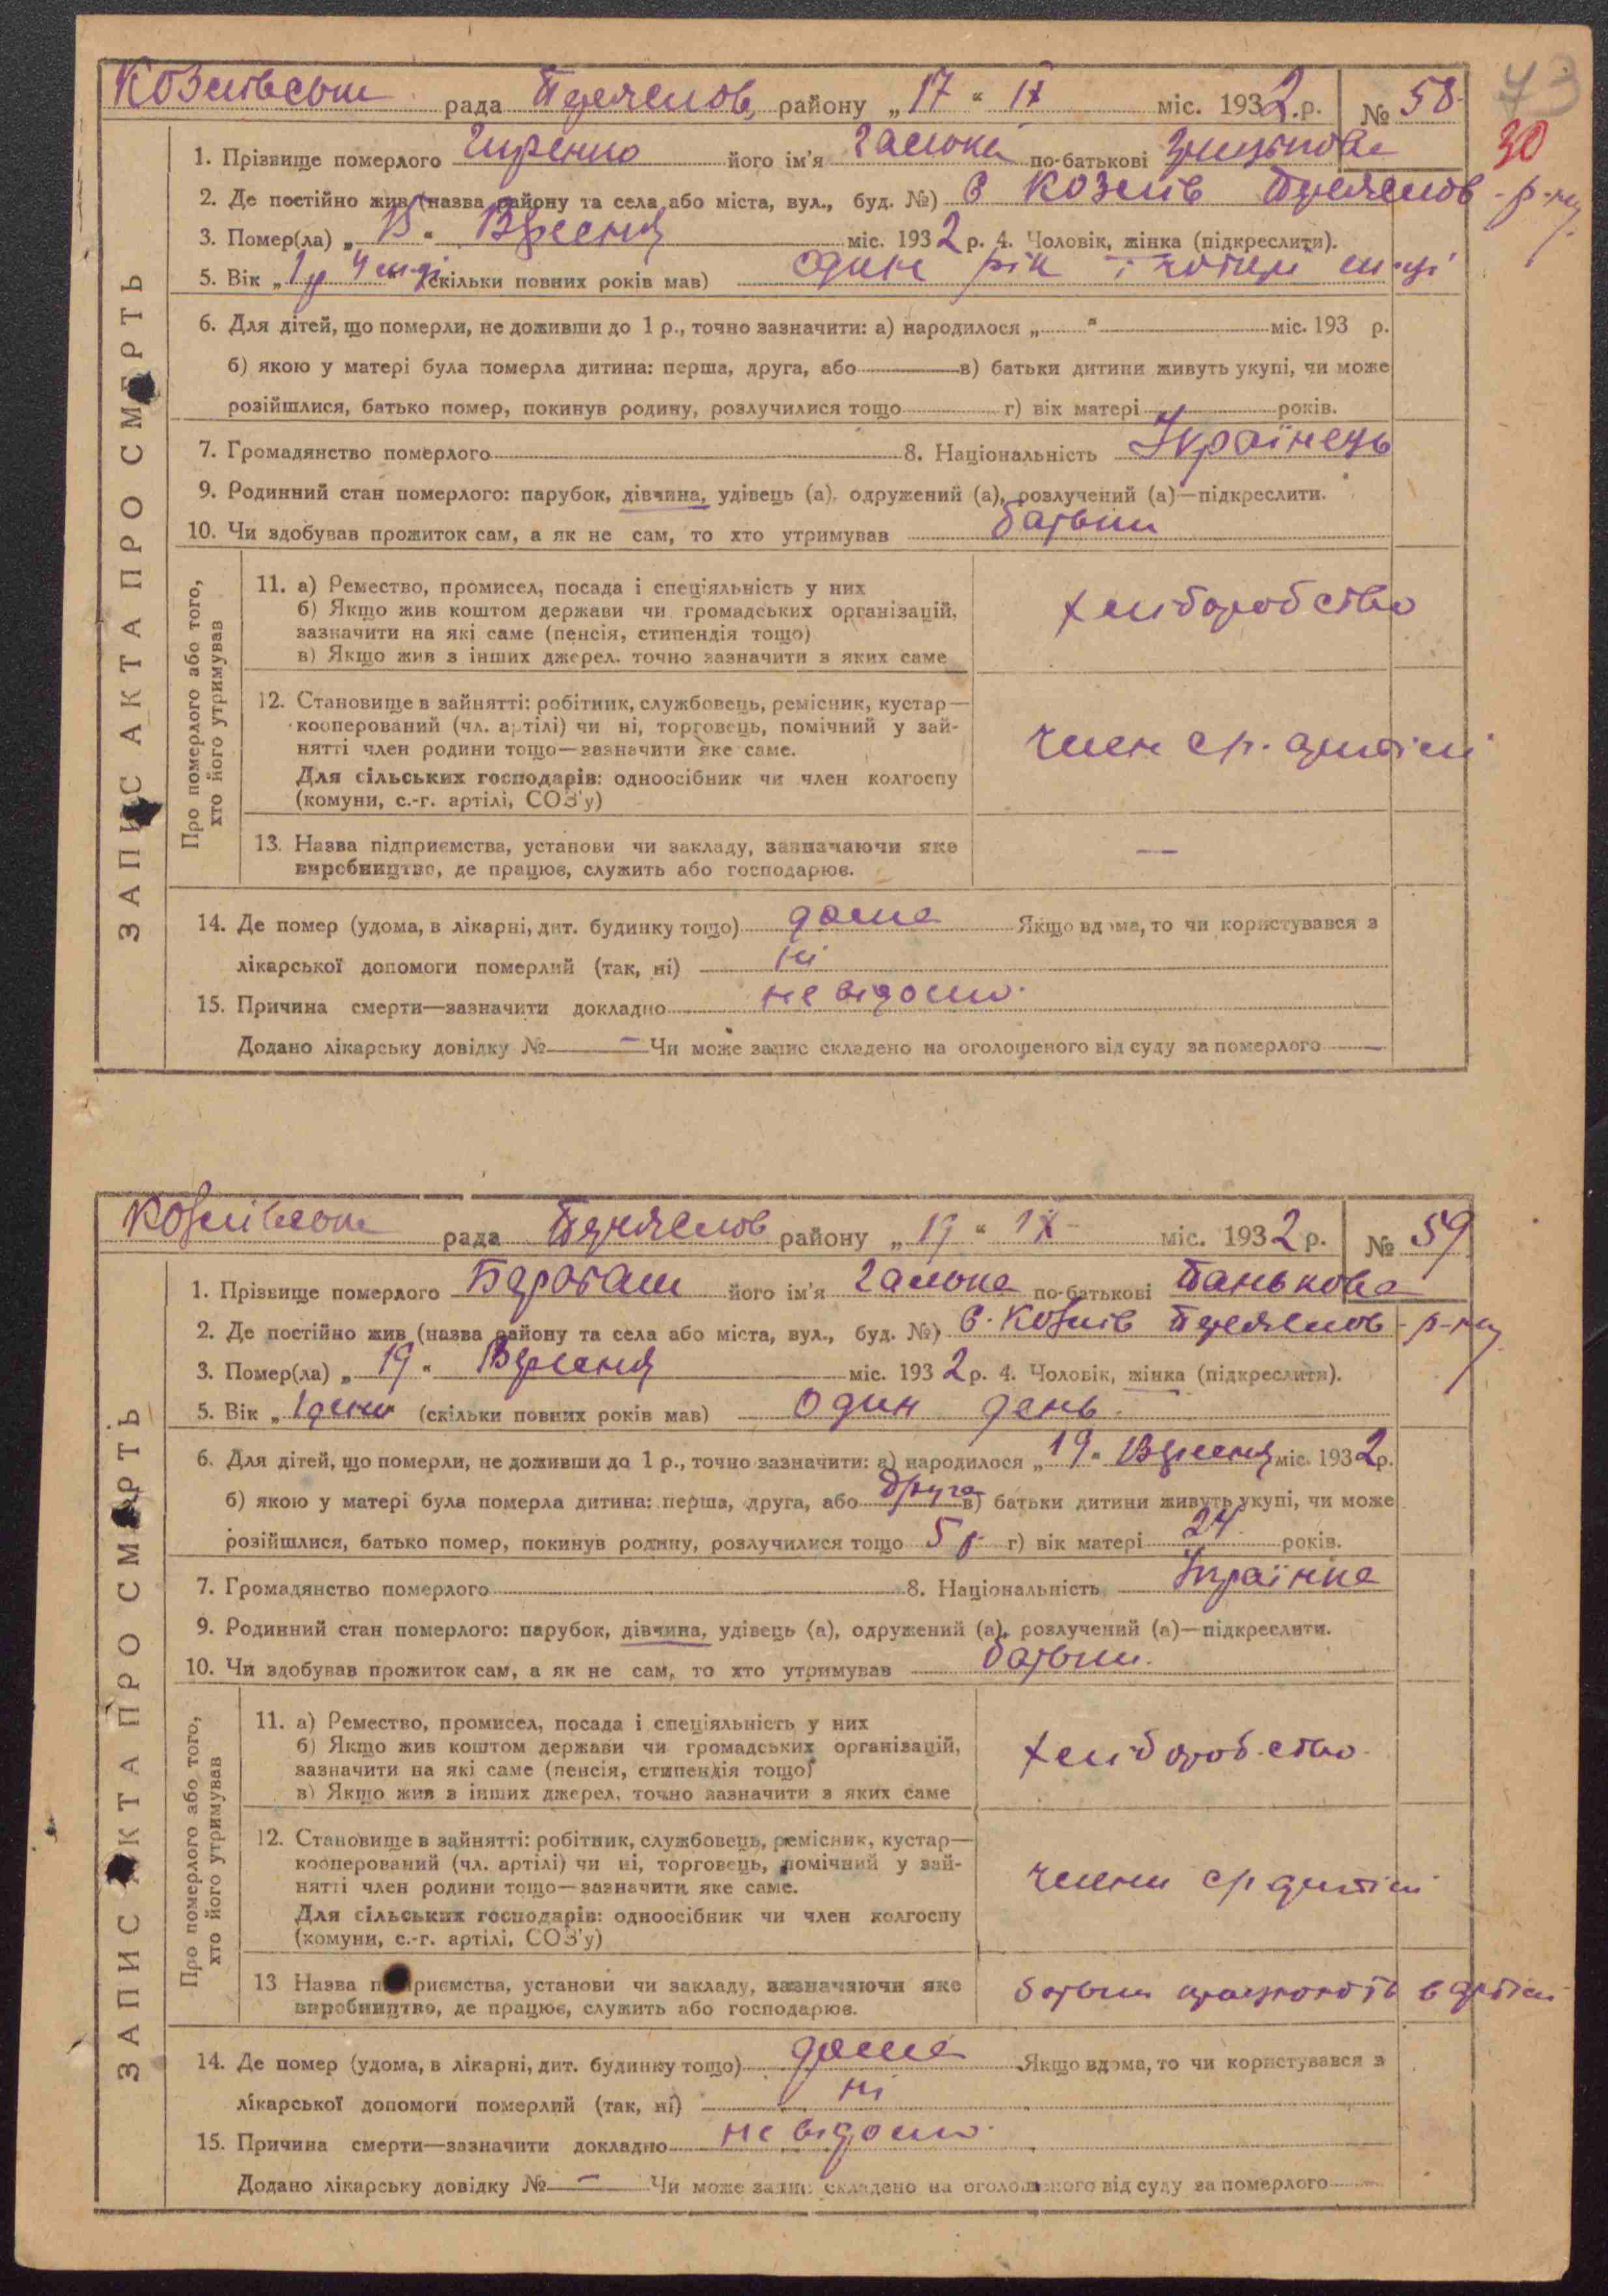 73
30
рада района „17“ IX міс. 1932 р. № 58
1. Прізвище померлого його ім'я Галюка по-батькові
2. Де постійно жив (назва району та села або міста, вул., буд. №) с Козлів
3. Помер(ла) „15“ Вресня міс. 1932 р. 4. Чоловік, жінка (підкреслити).
5. Вік „1 р 4 “ (скільки повних років мав) один рік і чотирі
6. Для дітей, що померли, не доживши до 1 р., точно зазначити: а) народилося „ “ міс. 193 р.
б) якою у матері була померла дитина: перша, друга, або в) батьки дитини живуть укупі, чи може
розійшлися, батько помер, покинув родину, розлучилися тощо г) вік матері років.
7. Громадянство померлого 8. Національність Українець
9. Родинний стан померлого: парубок, дівчина, удівець (а), одружений (а), розлучений (а)—підкреслити.
10. Чи здобував прожиток сам, а як не сам, то хто утримував батьки
ЗАПИС АКТА ПРО СМЕРТЬ
Про померлого або того,
хто його утримував
11. а) Ремество, промисел, посада і спеціяльність у них
б) Якщо жив коштом держави чи громадських організацій,
зазначити на які саме (пенсія, стипендія тощо)
в) Якщо жив з інших джерел, точно зазначити з яких саме
хліборобство
12. Становище в зайнятті: робітник, службовець, ремісник, кустар—
кооперований (чл. артілі) чи ні, торговець, помічний у зай-
нятті член родини тощо—зазначити яке саме.
Для сільських господарів: одноосібник чи член колгоспу
(комуни, с.-г. артілі, СОЗ'у)
член с/г. артілі
13. Назва підприємства, установи чи закладу, зазначаючи яке
виробництво, де працює, служить або господарює.
—
14. Де помер (удома, в лікарні, дит. будинку тощо) дома Якщо вдома, то чи користувався з
лікарської допомоги померлий (так, ні) ні
15. Причина смерти—зазначити докладно невідомо.
Додано лікарську довідку № — Чи може запис складено на оголошеного від суду за померлого —
рада району „19“ IX міс. 1932 р. № 59
1. Прізвище померлого його ім'я Галюка по-батькові Панькова
2. Де постійно жив (назва району та села або міста, вул., буд. №) с. Козлів р-ну
3. Помер(ла) „19“ Вресня міс. 1932 р. 4. Чоловік, жінка (підкреслити).
5. Вік „1 день“ (скільки повних років мав) один день.
6. Для дітей, що померли, не доживши до 1 р., точно зазначити: а) народилося „19“ Вресня міс. 1932 р.
б) якою у матері була померла дитина: перша, друга, або друга в) батьки дитини живуть укупі, чи може
розійшлися, батько помер, покинув родину, розлучилися тощо 5 р г) вік матері 24 років.
7. Громадянство померлого 8. Національність Українка
9. Родинний стан померлого: парубок, дівчина, удівець (а), одружений (а), розлучений (а)—підкреслити.
10. Чи здобував прожиток сам, а як не сам, то хто утримував батьки.
ЗАПИС АКТА ПРО СМЕРТЬ
Про померлого або того,
хто його утримував
11. а) Ремество, промисел, посада і спеціяльність у них
б) Якщо жив коштом держави чи громадських організацій,
зазначити на які саме (пенсія, стипендія тощо)
в) Якщо жив з інших джерел, точно зазначити з яких саме
хліборобство
12. Становище в зайнятті: робітник, службовець, ремісник, кустар—
кооперований (чл. артілі) чи ні, торговець, помічний у зай-
нятті член родини тощо—зазначити яке саме.
Для сільських господарів: одноосібник чи член колгоспу
(комуни, с.-г. артілі, СОЗ'у)
члени с/г артілі
13 Назва підприємства, установи чи закладу, зазначаючи яке
виробництво, де працює, служить або господарює.
батьки працюють в артілі
14. Де помер (удома, в лікарні, дит. будинку тощо) дома Якщо вдома, то чи користувався з
лікарської допомоги померлий (так, ні) ні
15. Причина смерти—зазначити докладно невідомо.
Додано лікарську довідку № — Чи може запис складено на оголошеного від суду за померлого —